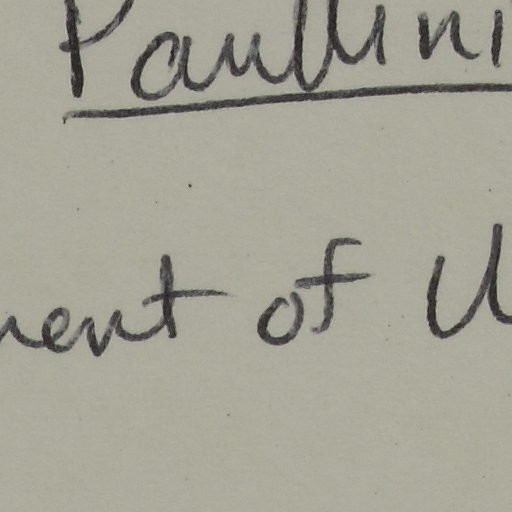 Paullini
ment of U